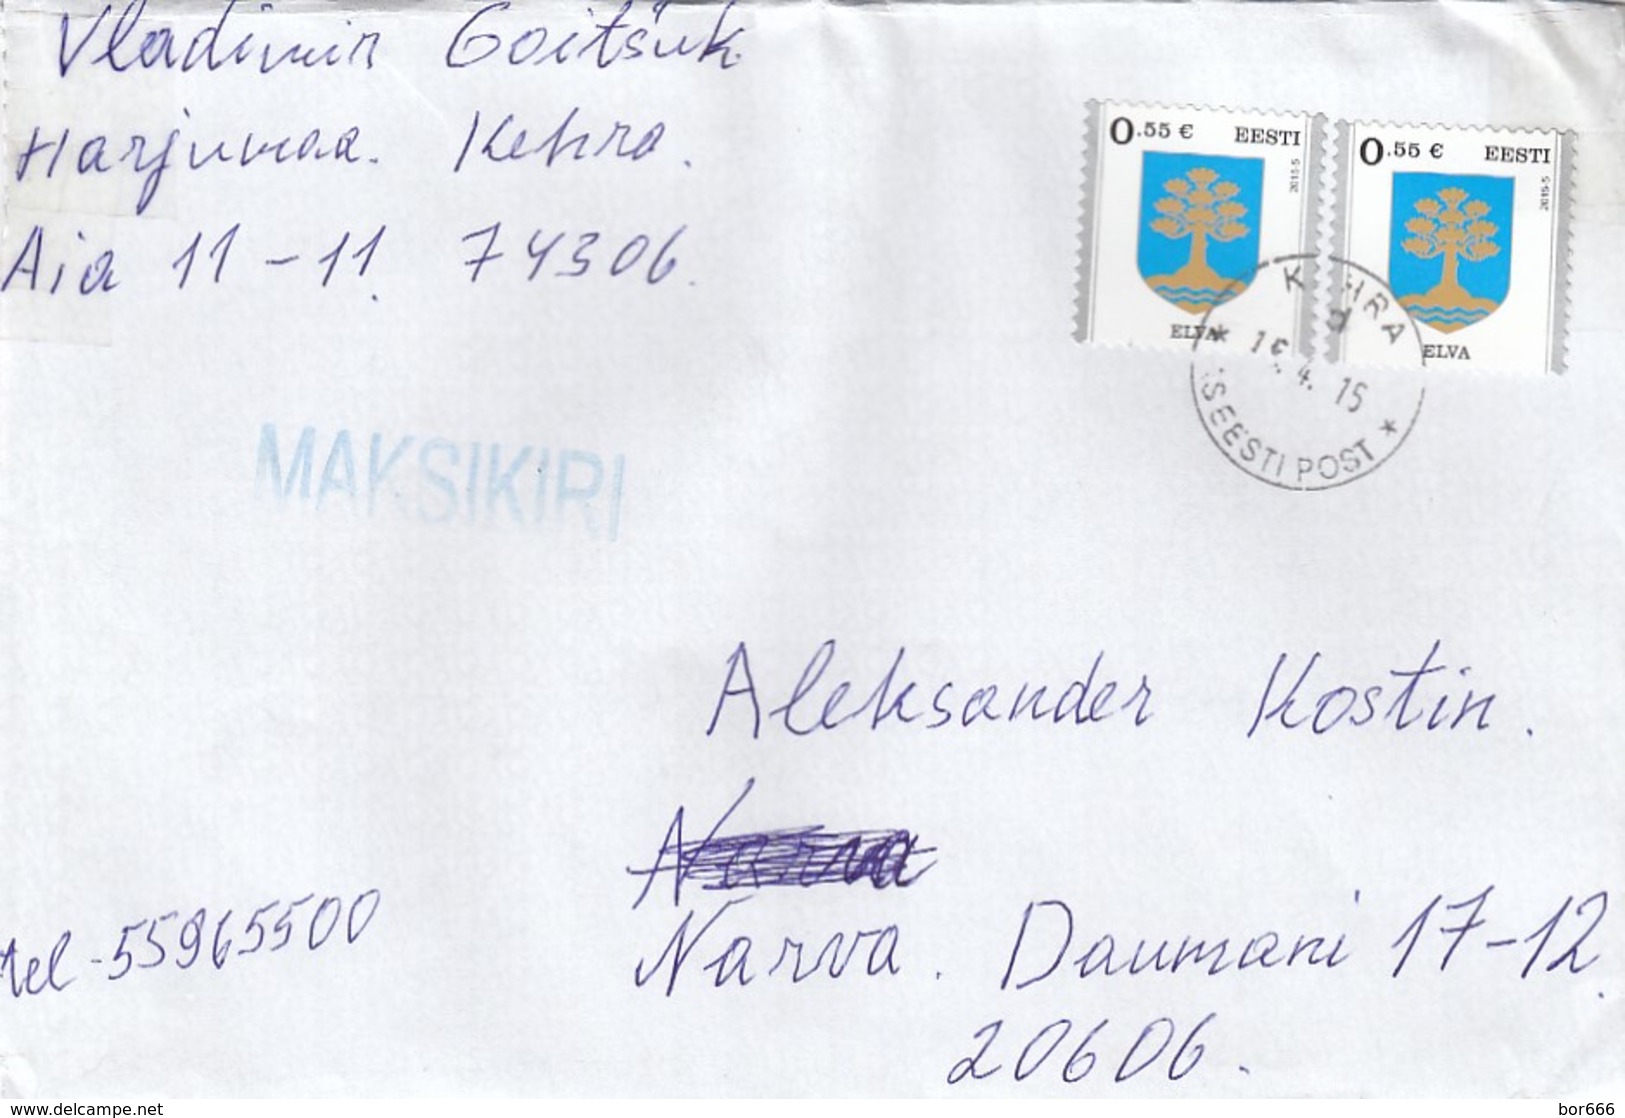 Vladimir Goitšuk
Harjumaa. Kehra.
Aia 11-11. 74306.
0.55 € EESTI
2015-5
ELVA
0.55 € EESTI
2015-5
ELVA
4. 15
EESTI POST
MAKSIKIRI
Aleksander Kostin.
Narva
Narva. Daumani 17-12.
20606.
tel-55965500
www.delcampe.net
bor666